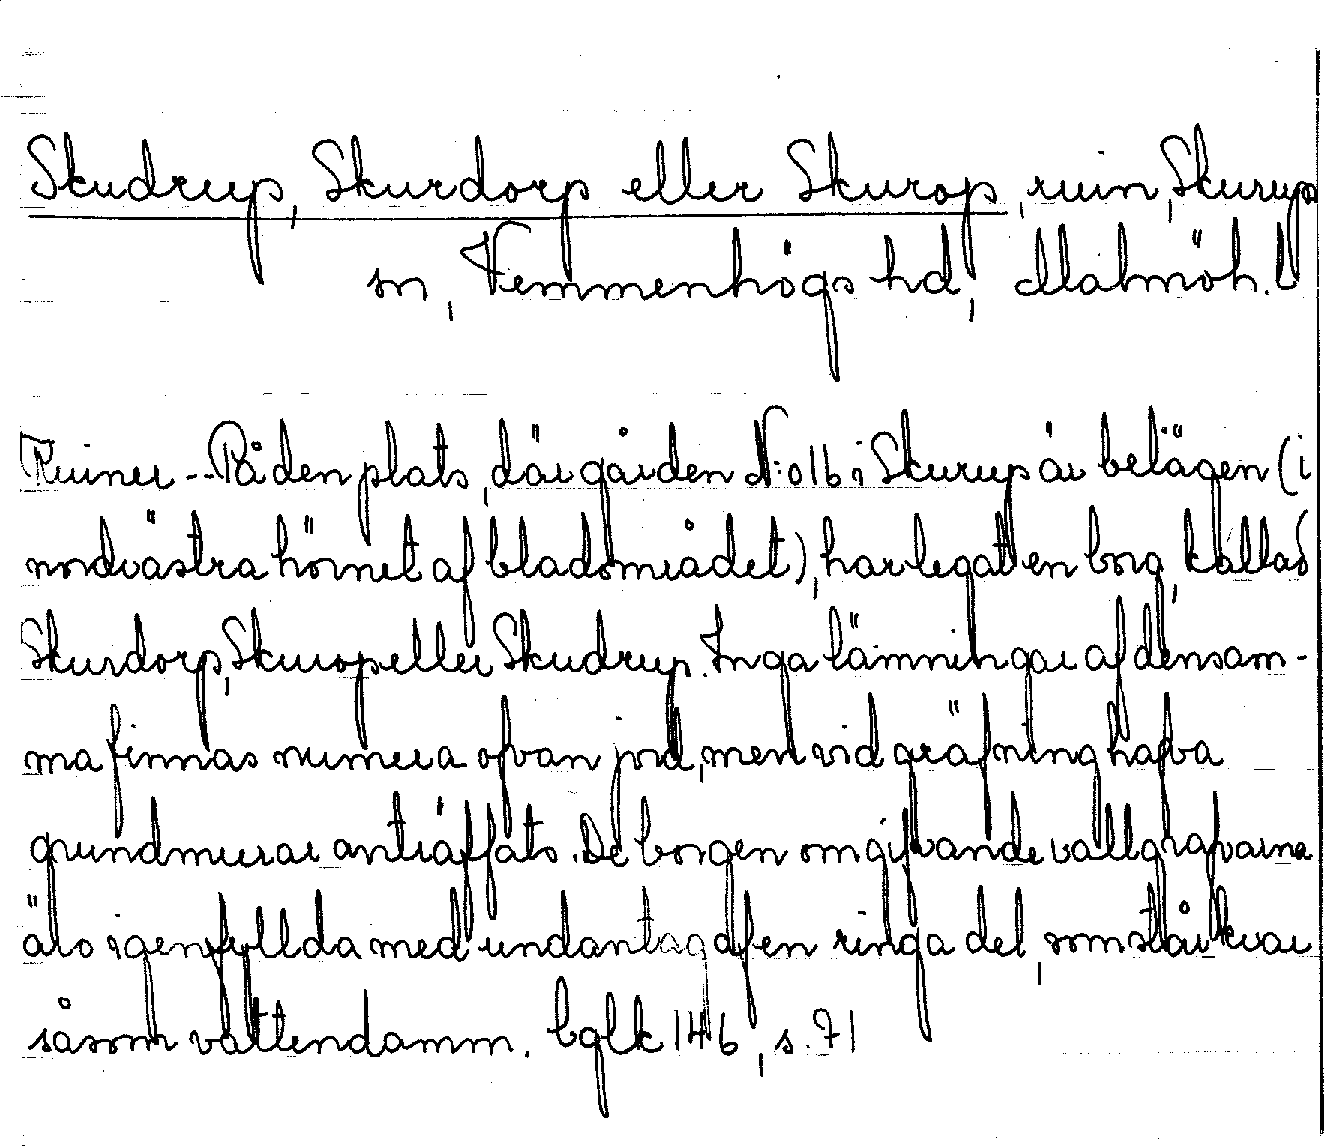 Skudrup, Skurdorp eller Skurop, ruin, Skurups
sn, Vemmenhögs hd, Malmöh. l
Ruiner -- På den plats, där gården N:o 16 i Skurup är belägen (i
nordvästra hörnet af bladområdet), har legat en borg, kallad
Skurdorp, Skurop eller Skudrup. Inga lämningar af densam-
ma finnas numera ofvan jord, men vid gräfning hafva
grundmurar anträffats. De borgen omgifvande vallgrafvarna
äro igenfyllda med undantag af en ringa del, som står kvar
såsom vattendamm. bglk 146, s. 71